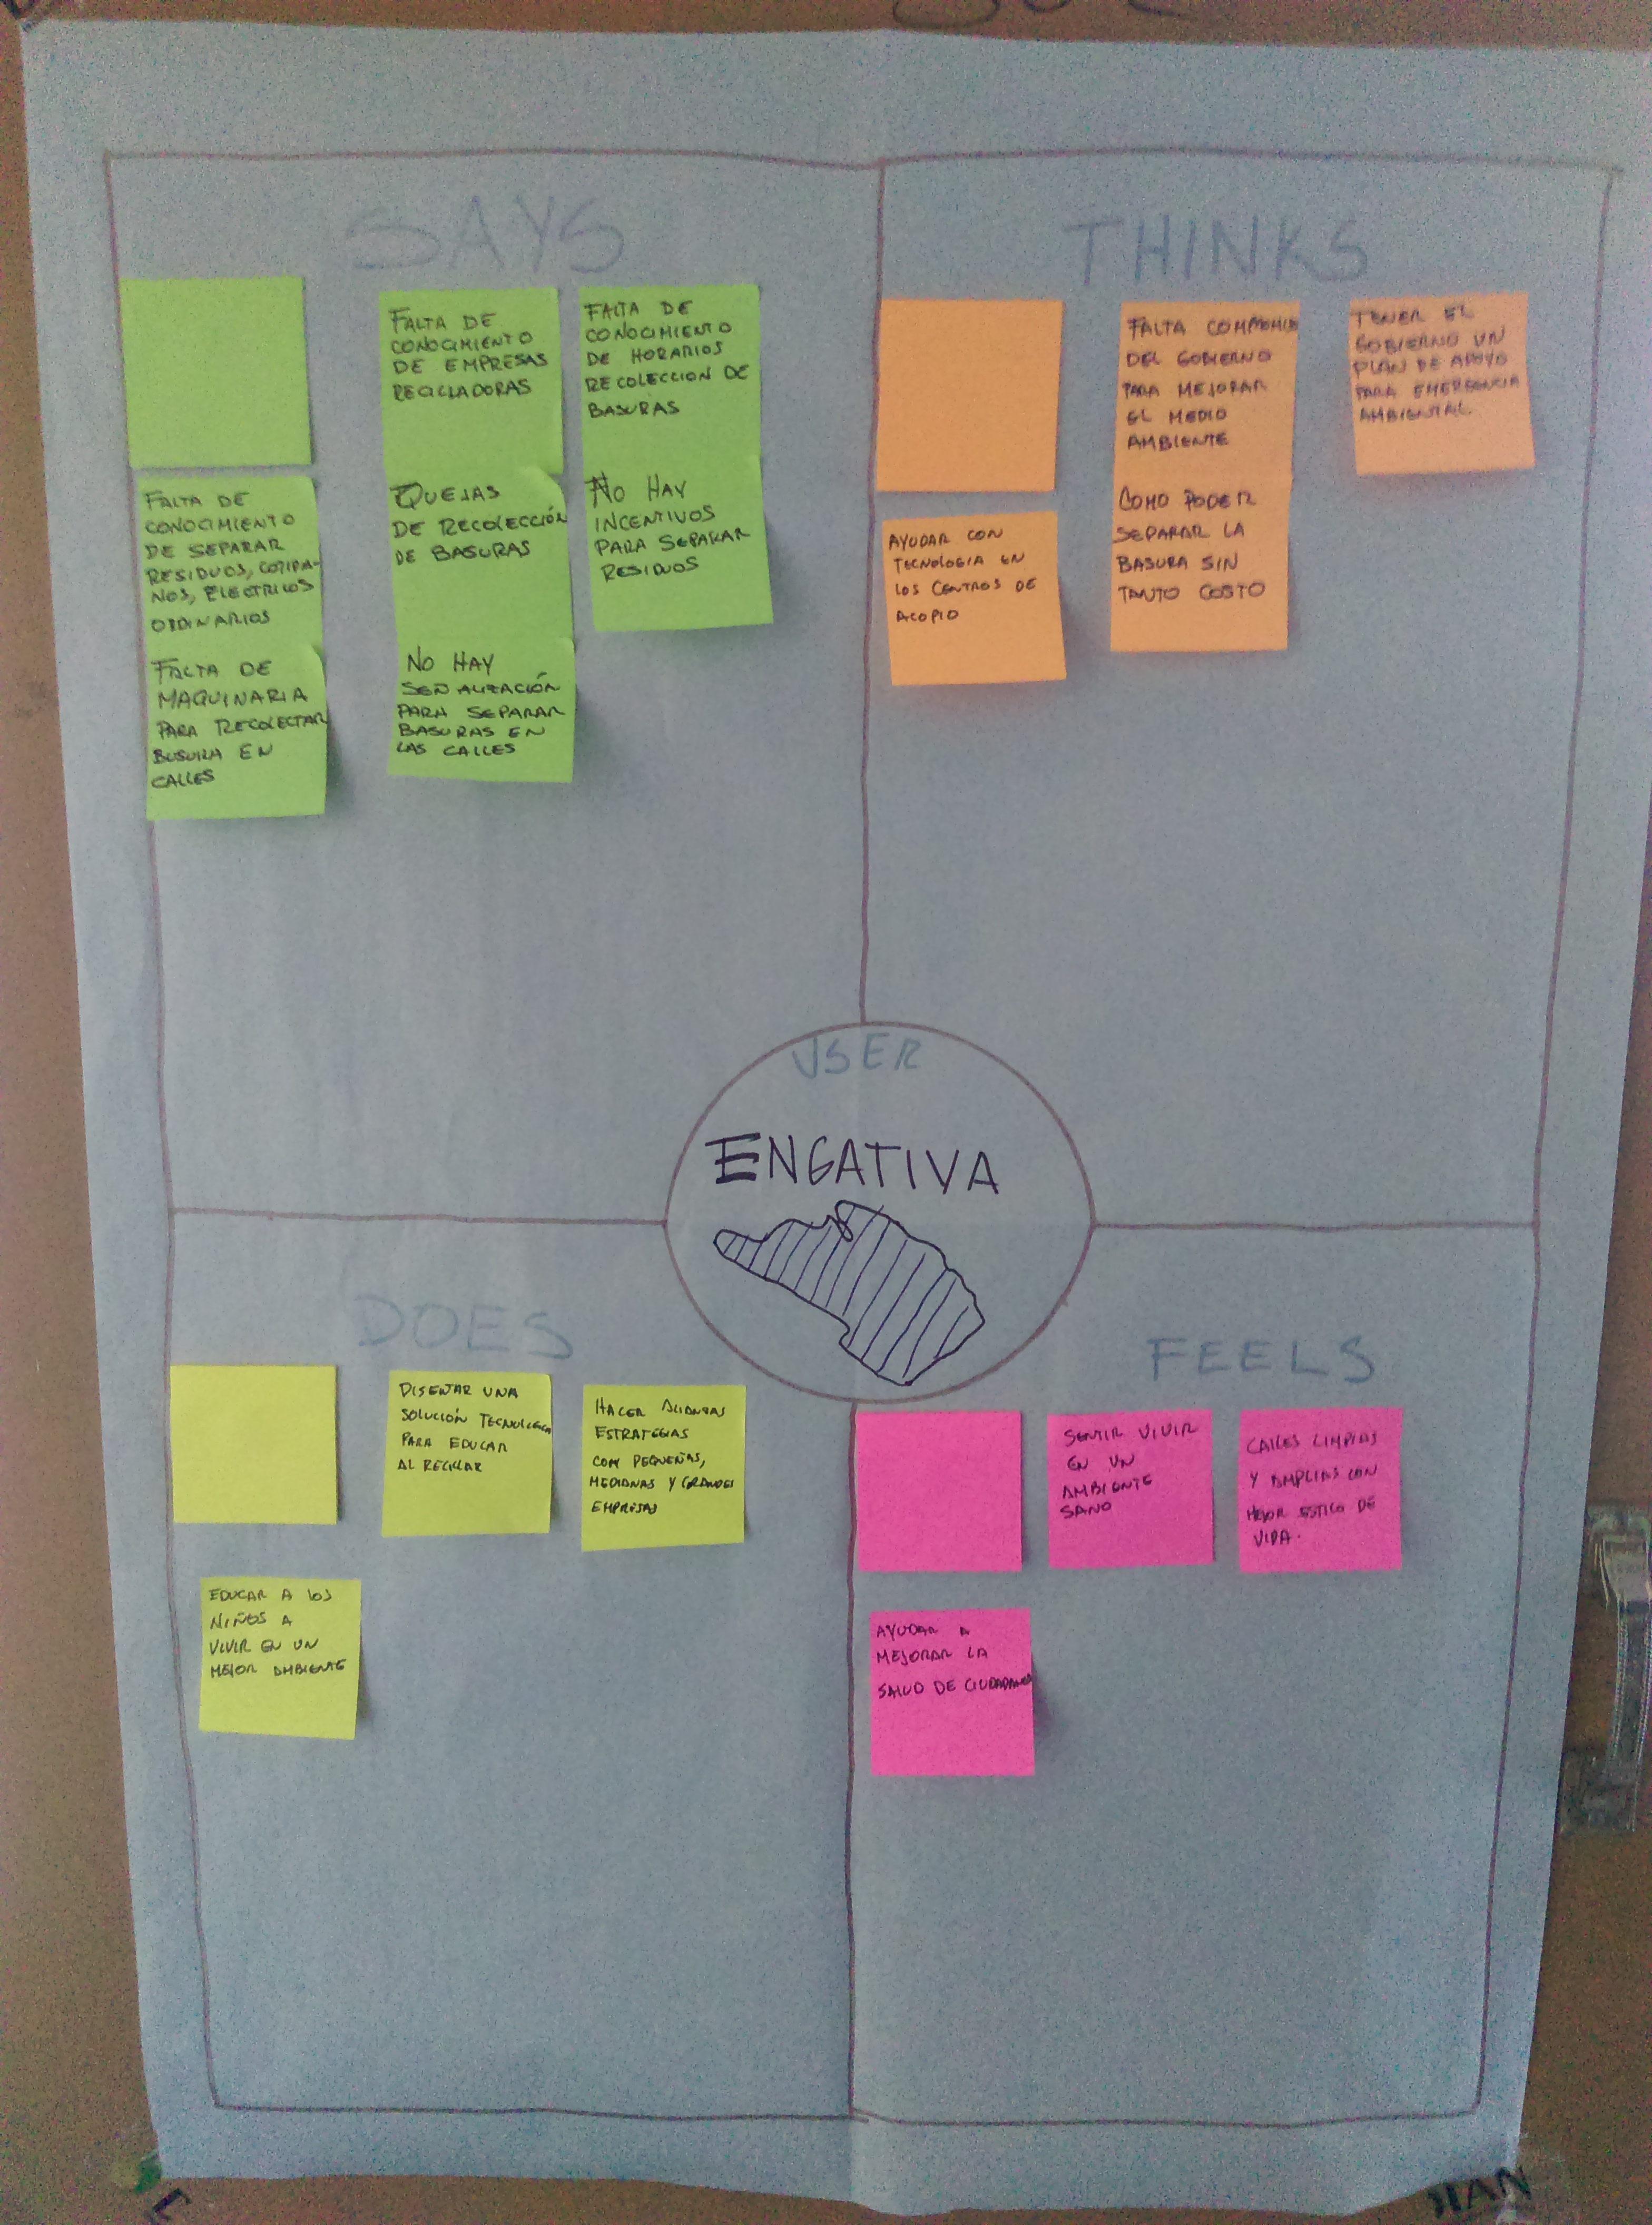 SAYS
FALTA DE
CONOCIMIENTO
DE EMPRESAS
RECICLADORAS
FALTA DE
CONOCIMIENTO
DE HORARIOS
RECOLECCION DE
BASURAS
FALTA DE
CONOCIMIENTO
DE SEPARAR
RESIDUOS,
NOS, ELECTRICOS
ORDINARIOS
QUEJAS
DE RECOLECCIÓN
DE BASURAS
NO HAY
INCENTIVOS
PARA SEPARAR
RESIDUOS
FALTA DE
MAQUINARIA
PARA RECOLECTAR
BUSURA EN
CALLES
NO HAY
SEÑALIZACIÓN
PARA SEPARAR
BASURAS EN
LAS CALLES
THINKS
FALTA
DEL GOBIERNO
PARA MEJORAR
EL MEDIO
AMBIENTE
TENER EL
GOBIERNO UN
PLAN DE APOYO
PARA EMERGENCIA
AMBIENTAL
AYUDAR CON
TECNOLOGIA EN
LOS CENTROS DE
ACOPIO
COMO PODER
SEPARAR LA
BASURA SIN
TANTO COSTO
USER
ENGATIVA
DOES
DISEÑAR UNA
SOLUCIÓN TECNOLOGICA
PARA EDUCAR
AL RECICLAR
HACER ALIANZAS
ESTRATEGIAS
CON PEQUEÑAS,
MEDIANAS Y GRANDES
EMPRESAS
EDUCAR A LOS
NIÑOS A
VIVIR EN UN
MEJOR AMBIENTE
FEELS
SENTIR VIVIR
EN UN
AMBIENTE
SANO
CALLES LIMPIAS
Y AMPLIAS CON
MEJOR ESTILO DE
VIDA.
AYUDAR A
MEJORAR LA
SALUD DE CIUDADANOS